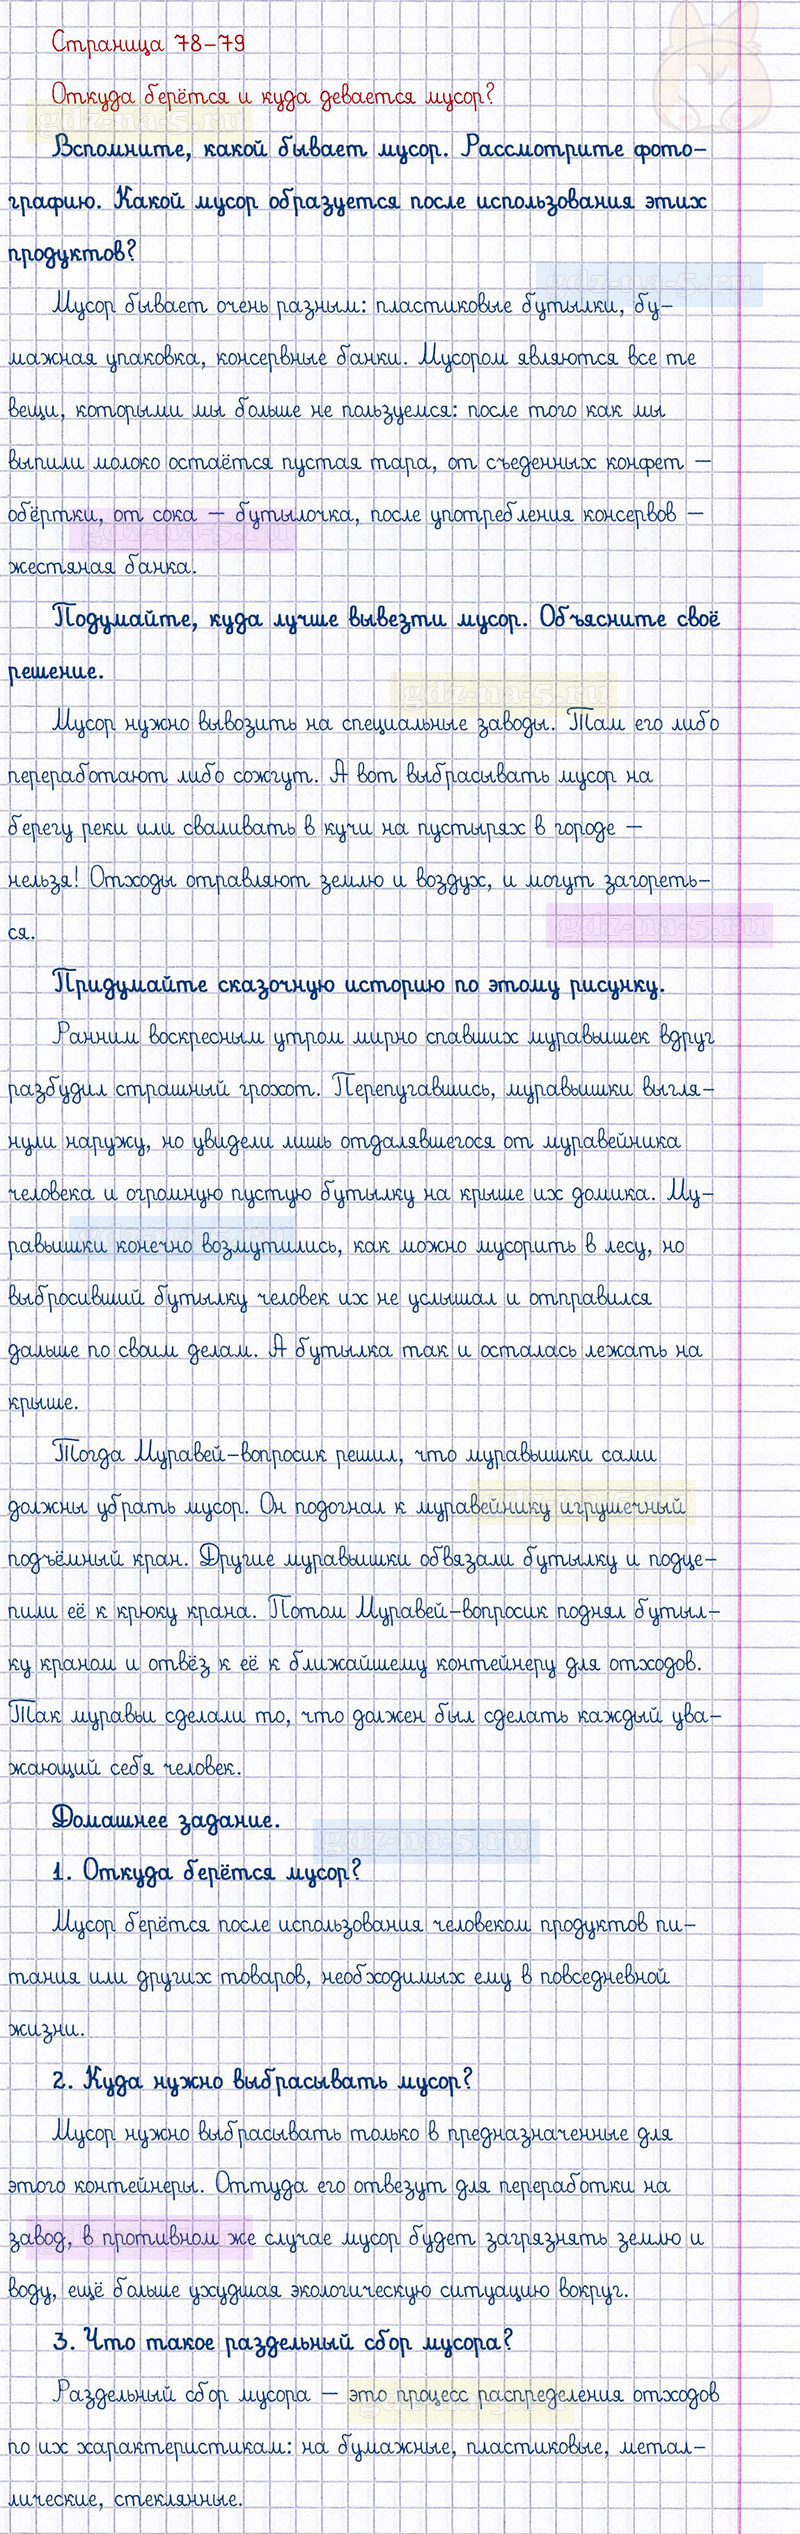 Страница 78-79
Откуда берётся и куда девается мусор?
gdz-na-5.ru
Вспомните, какой бывает мусор. Рассмотрите фото-
графию. Какой мусор образуется после использования этих
продуктов?
gdz-na-5.ru
Мусор бывает очень разным: пластиковые бутылки, бу-
мажная упаковка, консервные банки. Мусором являются все те
вещи, которыми мы больше не пользуемся: после того как мы
выпили молоко остаётся пустая тара, от съеденных конфет -
обёртки, от сока - бутылочка, после употребления консервов -
gdz-na-5.ru
жестяная банка.
Подумайте, куда лучше вывезти мусор. Объясните своё
решение.
gdz-na-5.ru
Мусор нужно вывозить на специальные заводы. Там его либо
переработают либо сожгут. А вот выбрасывать мусор на
берегу реки или сваливать в кучи на пустырях в городе -
нельзя! Отходы отравляют землю и воздух, и могут загореть-
ся.
gdz-na-5.ru
Придумайте сказочную историю по этому рисунку.
Ранним воскресным утром мирно спавших муравьишек вдруг
разбудил страшный грохот. Перепугавшись, муравьишки выгля-
нули наружу, но увидели лишь отдалявшегося от муравейника
человека и огромную пустую бутылку на крыше их домика. Му-
равьишки конечно возмутились, как можно мусорить в лесу, но
выбросивший бутылку человек их не услышал и отправился
дальше по своим делам. А бутылка так и осталась лежать на
крыше.
Тогда Муравей-вопросик решил, что муравьишки сами
должны убрать мусор. Он подогнал к муравейнику игрушечный
подъёмный кран. Другие муравьишки обвязали бутылку и подце-
пили её к крюку крана. Потом Муравей-вопросик поднял бутыл-
ку краном и отвёз к её к ближайшему контейнеру для отходов.
Так муравьи сделали то, что должен был сделать каждый ува-
жающий себя человек.
Домашнее задание.
gdz-na-5.ru
1. Откуда берётся мусор?
Мусор берётся после использования человеком продуктов пи-
тания или других товаров, необходимых ему в повседневной
жизни.
2. Куда нужно выбрасывать мусор?
Мусор нужно выбрасывать только в предназначенные для
этого контейнеры. Оттуда его отвезут для переработки на
завод, в противном же случае мусор будет загрязнять землю и
воду, ещё больше ухудшая экологическую ситуацию вокруг.
3. Что такое раздельный сбор мусора?
Раздельный сбор мусора - это процесс распределения отходов
по их характеристикам: на бумажные, пластиковые, метал-
лические, стеклянные.